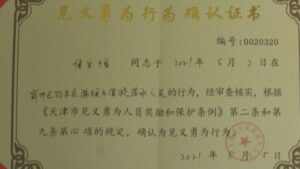 见义勇为行为确认证书
编号:0020320
同志于2021年5月2日在
落水人员的行为,经审查核实,根据
《天津市见义勇为人员奖励和保护条例》第二条和第
九条第 项的规定,确认为见义勇为行为。
2021年5月5日